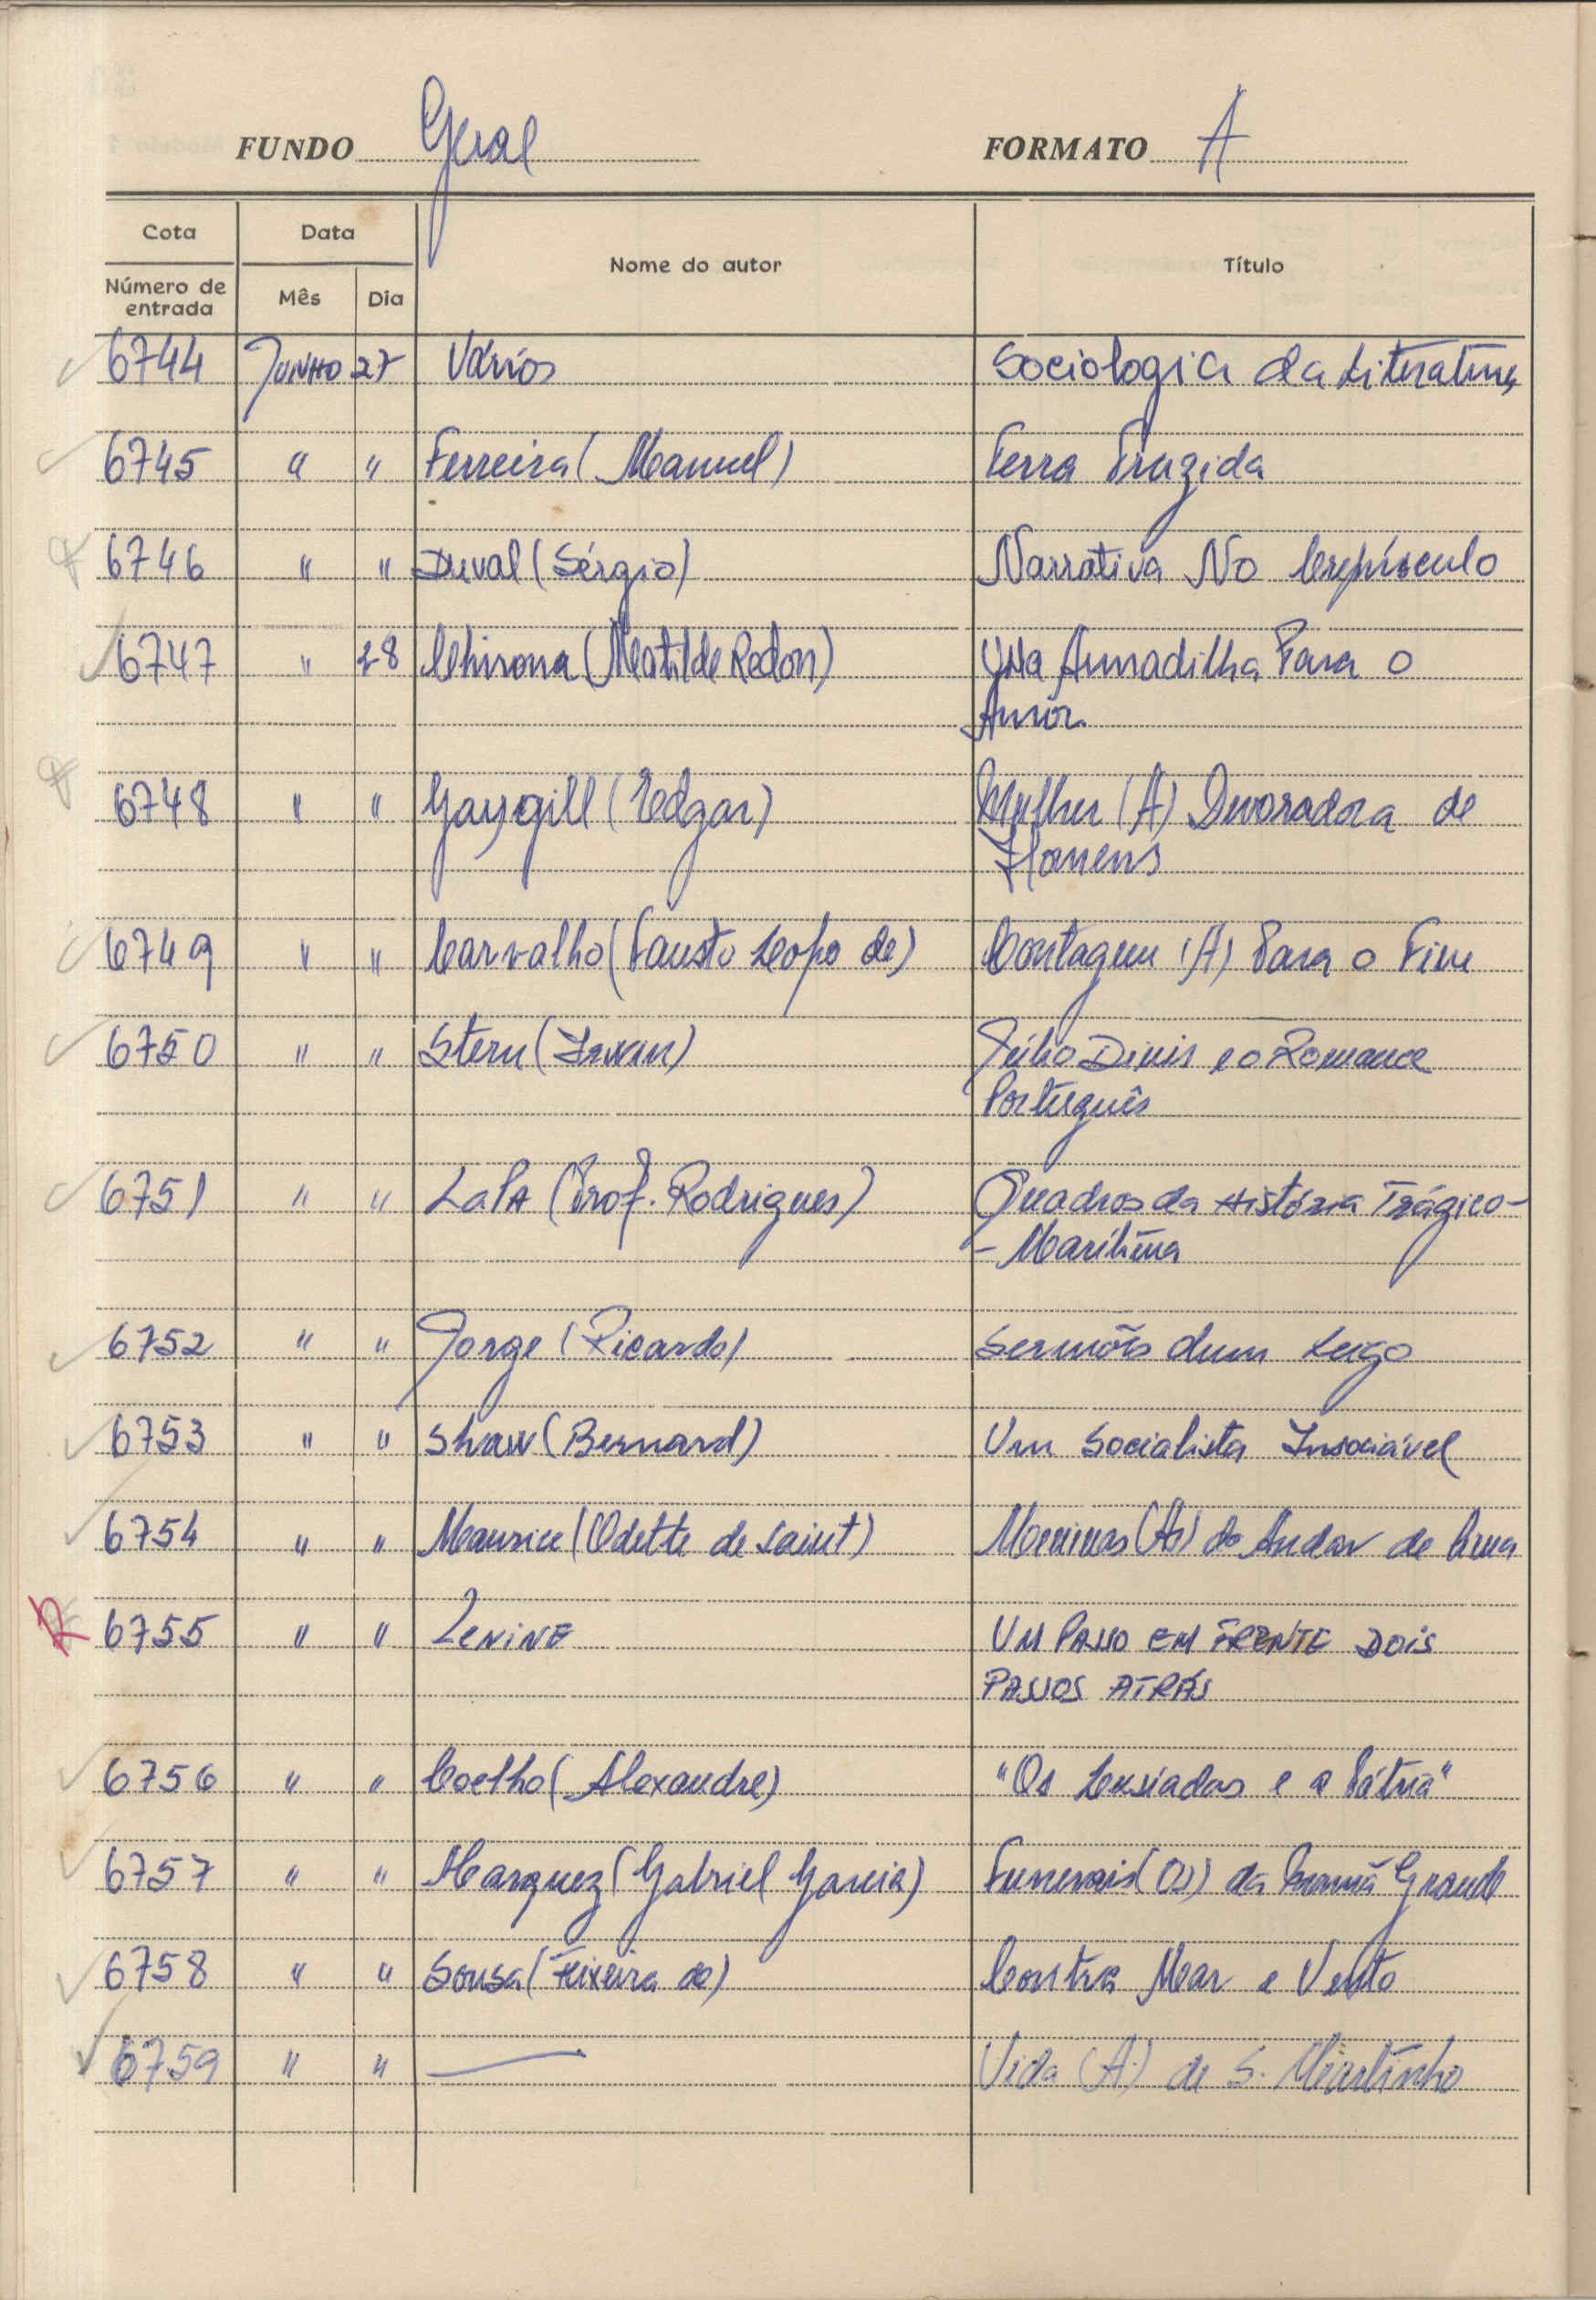 FUNDO Geral FORMATO A
Cota Data Nome do autor Título
Número de entrada Mês Dia
6744 Junho 27 Vários Sociologia da Literatura
6745 " " Ferreira (Manuel) Terra Trazida
6746 " " Duval (Sérgio) Narrativa No Crepúsculo
6747 " 28 Chirona (Matilde Redon) Uma Armadilha Para o
Amor
6748 " " Gaysgill (Edgar) Mulher (A) Devoradora de
Homens
6749 " " Carvalho (Fausto Lopo de) Contagem (A) Para o Fim
6750 " " Stern (Irwin) Júlio Dinis e o Romance
Português
6751 " " LaPA (Prof. Rodrigues) Quadros da História Trágico-
-Marítima
6752 " " Jorge (Ricardo) Sermões dum Leigo
6753 " " Shaw (Bernard) Um Socialista Insociável
6754 " " Maurice (Odette de Saint) Meninas (As) do Andar de Cima
R 6755 " " LENINE UM PASSO EM FRENTE DOIS
PASSOS ATRÁS
6756 " " Coelho (Alexandre) "Os Lusíadas e a Pátria"
6757 " " Marquez (Gabriel Garcia) Funerais (Os) da Mamã Grande
6758 " " Sousa (Teixeira de) Contra Mar e Vento
6759 " " — Vida (A) de S. Martinho